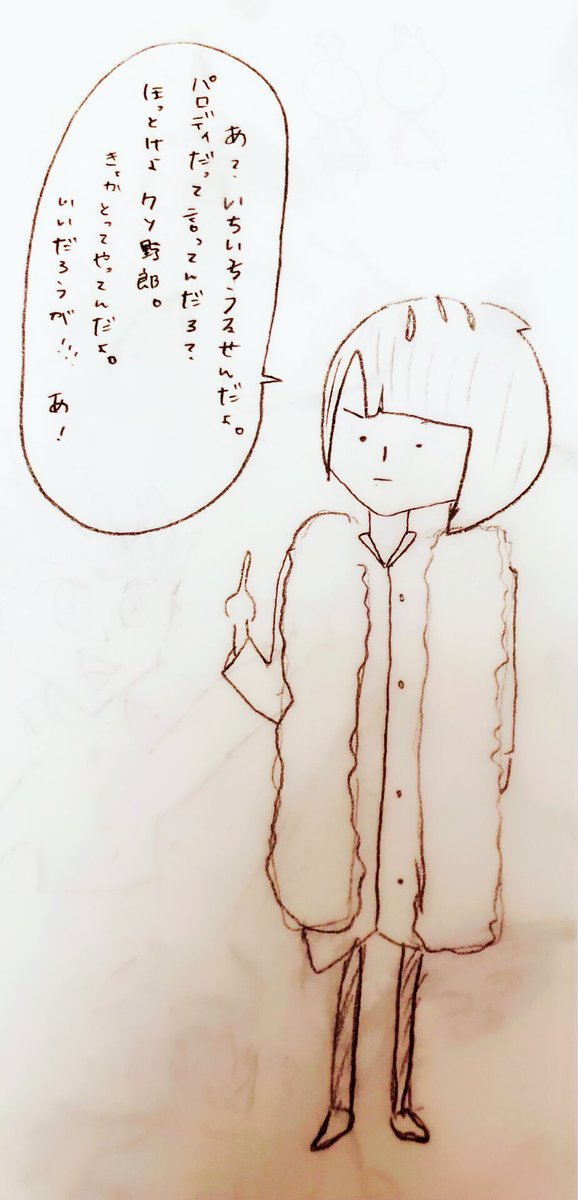 あ?いちいちうるせんだよ。
パロディだって言ってんだろ?
ほっとけよクソ野郎。
きょかとってやってんだよ。
いいだろうが!!! あ!